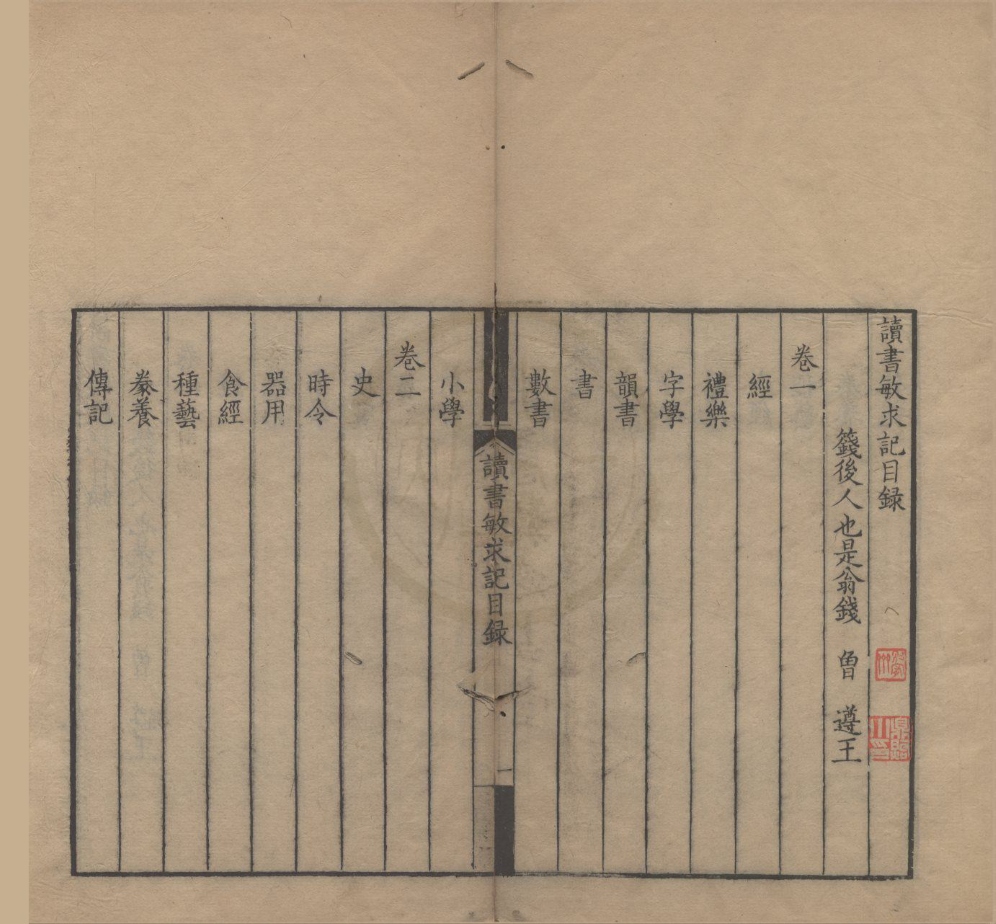 讀書敏求記目録
籛後人也是翁錢 曾 遵王
卷一
經
禮樂
字學
韻書
書
數書
讀書敏求記目録
一
小學
卷二
史
時令
器用
食經
種藝
豢養
傳記